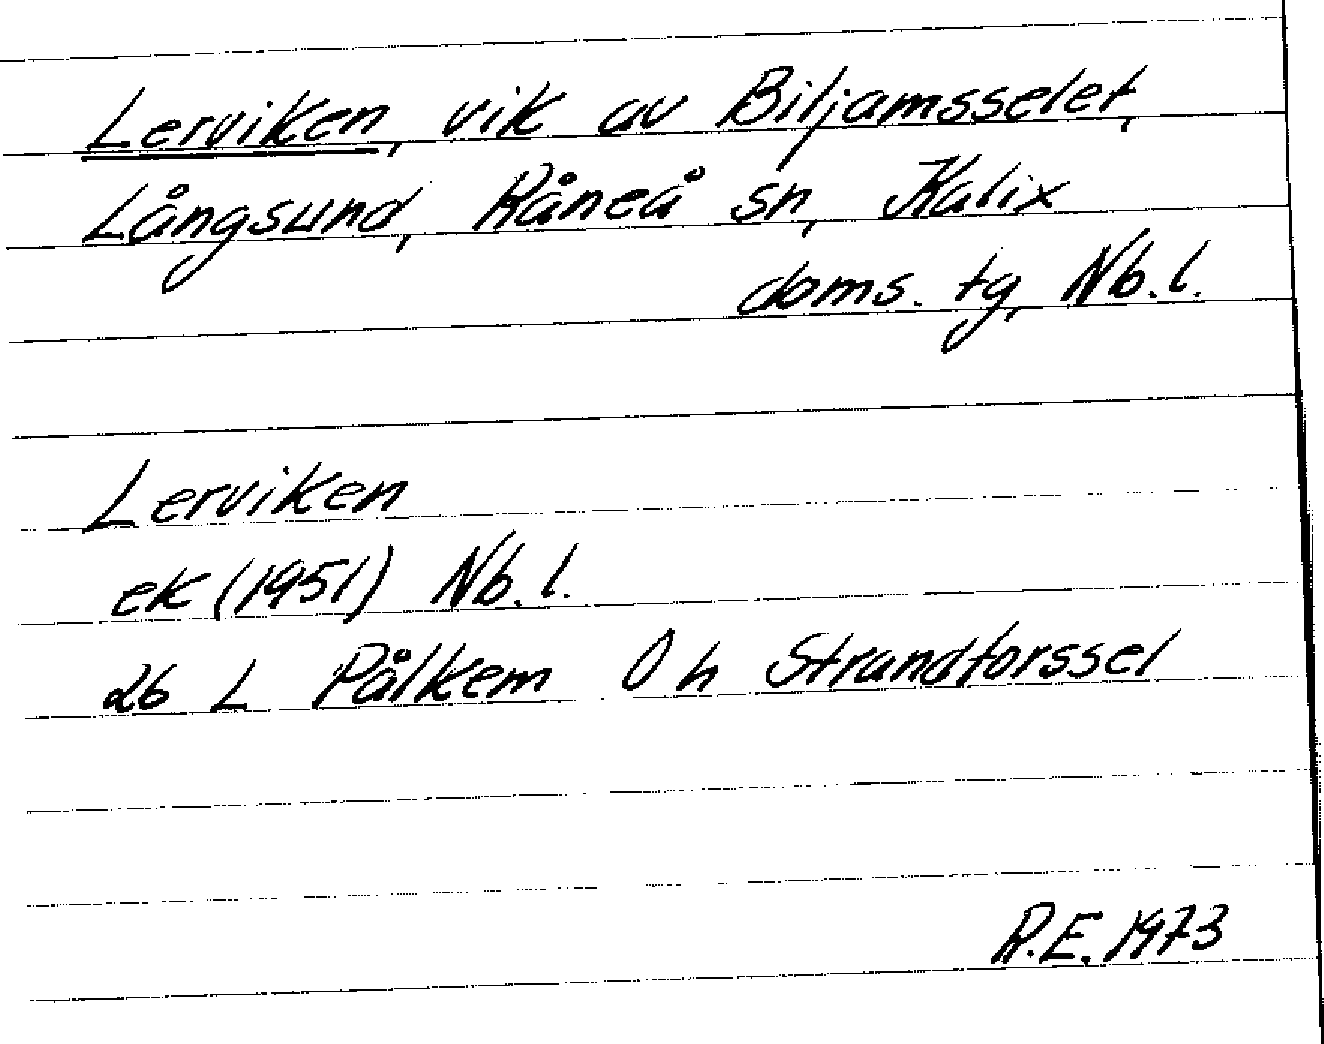 Lerviken, vik av Biljamsselet,
Långsund, Råneå sn, Kalix
doms. tg, Nb. l.
Lerviken
ek (1951) Nb. l.
26 L Pålkem 0 h Strandforssel
R.E. 1973